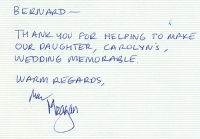 BERNARD —
THANK YOU FOR HELPING TO MAKE
OUR DAUGHTER, CAROLYN'S,
WEDDING MEMORABLE.
WARM REGARDS,
Meagan